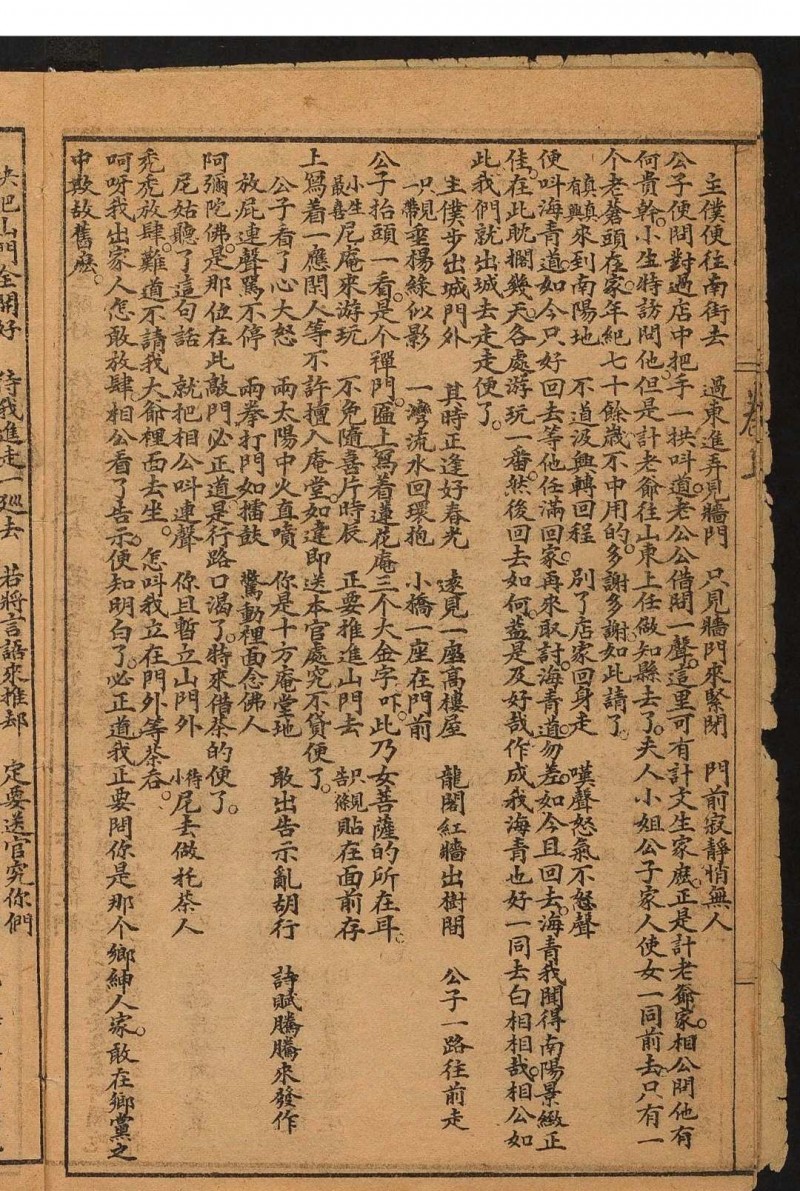 卷上
主僕便往南街去　過東進弄見牆門　只見牆門來緊閉　門前寂靜悄無人
公子便問對過店中把手一拱叫道老公公借問一聲這里可有計文生家庅正是計老爺家相公問他有
何貴幹小生特訪問他但是計老爺往山東上任做知縣去了夫人小姐公子家人使女一同前去只有一
个老蒼頭在家年紀七十餘歲不中用的多謝多謝如此請了
有興顛顛來到南陽地　不道汲興轉回程　別了店家回身走　嘆聲怒氣不怒聲
便叫海青道如今只好回去等他任滿回家再來取討海青道勿差如今且回去海青我聞得南陽景緻正
佳在此耽擱幾天各處游玩一番然後回去如何蓋是及好哉作成我海青也好一同去白相相哉相公如
此我們就出城去走走便了
主僕步出城門外　其時正逢好春光　遠見一座高樓屋　龍閣紅牆出樹間　公子一路往前走
只見一帶垂楊綠似影　一灣流水回環抱　小橋一座在門前
公子抬頭一看是个禪門匾上寫着蓮花庵三个大金字吓此乃女菩薩的所在耳
小生最喜尼庵來游玩　不免隨喜片時辰　正要推進山門去　只見告條貼在面前存
上寫着一應閑人等不許擅入庵堂如違即送本官處究不貸便了
公子看了心大怒　兩太陽中火直噴　你是十方庵堂地　敢出告示亂胡行　詩賦騰騰來發作
放屁連聲罵不停　兩拳打門如擂鼓　驚動裡面念佛人
阿彌陀佛是那位在此敲門必正道是行路口渴了特來借茶的便了
尼姑聽了這句話　就把相公叫連聲　你且暫立山門外　待小尼去做托茶人
禿禿放肆難道不請我大爺裡面去坐怎叫我立在門外等茶吞
呵呀我出家人怎敢放肆相公看了告示便知明白了必正道我正要問你是那个鄉紳人家敢在鄉黨之
中欺故舊庅
央把山門全開好　待我進走一巡去　若將言語來推却　定要送官究你們